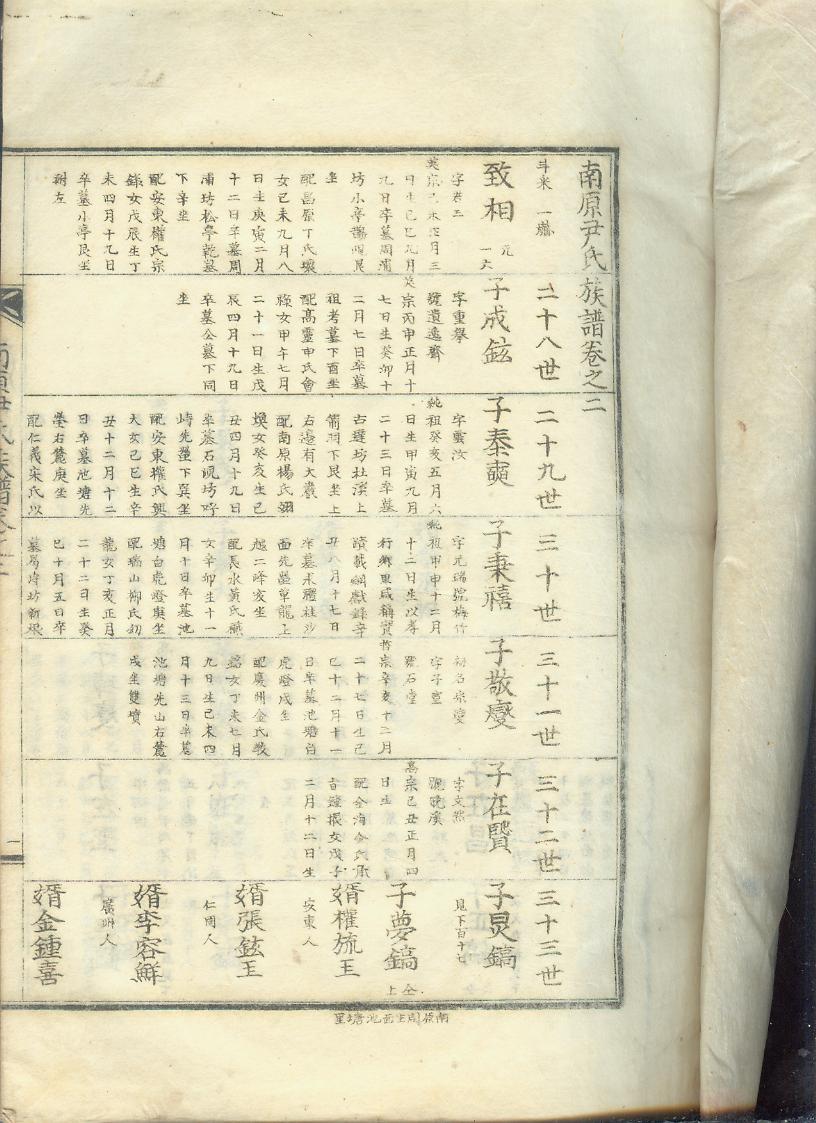 南原尹氏族譜卷之二
斗米 一
致相
元
一六
字君三
英宗己未正月三
日生己巳九月
九日卒墓周浦
坊小亭
坐
配昌原丁氏
女己未九月八
日生庚寅二月
十二日卒墓周
浦坊松亭乾坐
下辛坐
配安東權氏宗
女戊辰生丁
未四月十九日
卒墓小亭艮坐
祔左
二十八世
子成鉉
字重擧
號遺逸齋
英宗丙申正月十
七日生癸卯十
二月七日卒墓
祖考墓下酉坐
配高靈申氏會
祿女甲午七月
二十一日生戊
辰四月十九日
卒墓公墓下同
坐
二十九世
子秦奭
字雲汝
純祖癸亥五月六
日生甲寅九月
二十三日卒墓
古達坊杜溪上
艮坐上
右邊有大巖
配南原楊氏
煥女癸亥生己
丑四月十九日
卒墓石峴坊
峙先塋下巽坐
配安東權氏興
大女己巳生辛
丑十二月十二
日卒墓池塘先
塋右麓庚坐
配仁義宋氏以
三十世
子秉禧
字元瑞號梅竹
純祖甲申十二月
十二日生以孝
行鄕里咸稱實
蹟載綱獻錄辛
丑八月十七日
卒墓
面先塋章龍上
越二峰亥坐
配長水黃氏
女辛卯生十一
月十日卒墓池
塘白虎嶝庚坐
配瑞山柳氏
龍女丁亥正月
二十二日生癸
巳十月五日卒
三十一世
子敬燮
初名宗燮
字子
號石堂
哲宗辛亥十二月
二十七日生己
巳十二月十一
日卒墓池塘白
虎嶝戌坐
配慶州金氏
女丁未七月
九日生己未四
月十三日卒墓
池塘先山右麓
戌坐雙墳
三十二世
子在賢
字文
號晩溪
高宗己丑正月四
日生
配金海金氏
振女戊子
二月十二日生
三十三世
子炅鎬
見下百十七
子夢鎬
仝上
婿權㫌玉
安東人
婿張鉉玉
仁同人
婿李容鮮
廣州人
婿金鍾喜
南原周生面池塘里
南原尹氏族譜卷之二
一